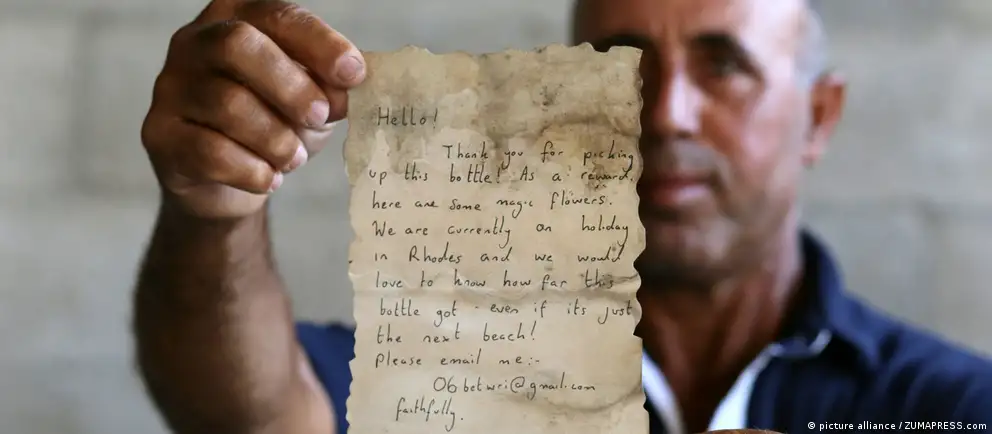 Hello!
Thank you for picking
up this bottle! As a reward,
here are some magic flowers.
We are currently on holiday
in Rhodes and we would
love to know how far this
bottle got - even if its just
the next beach!
Please email me:-
06betwri@gmail.com
faithfully.
© picture alliance / ZUMAPRESS.com